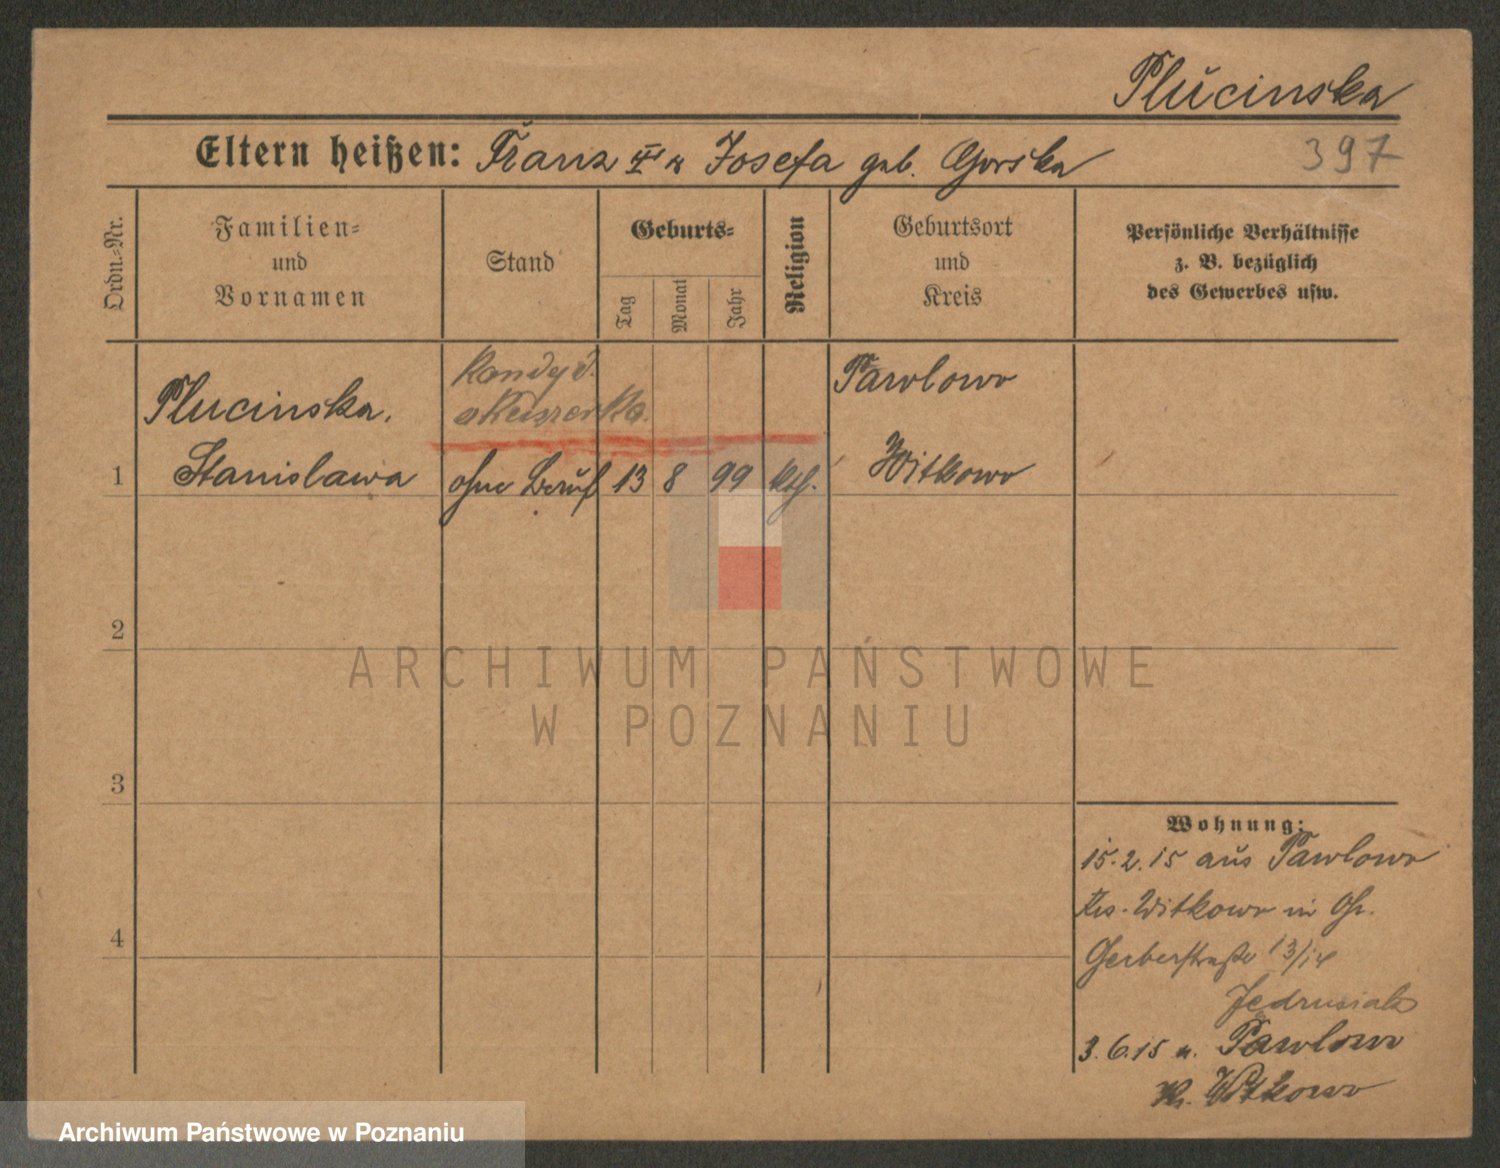 Plucinska
Eltern heißen: Franz u Josefa geb. Gorska
397
Ordn.-Nr.
Familien-
und
Vornamen
Stand
Geburts-
Tag
Monat
Jahr
Religion
Geburtsort
und
Kreis
Persönliche Verhältnisse
z. B. bezüglich
des Gewerbes usw.
Kandyd.
akuszerka.
Plucinska,
Pawlowo
1 Stanislawa ohne Beruf 13 8 99 kth. Witkowo
2
3
4
Wohnung:
15.2.15 aus Pawlowo
Krs. Witkowo in Gn.
Gerberstraße 13/14
Jędrusiak
3.6.15 n. Pawlowo
Kr. Witkowo
ARCHIWUM PAŃSTWOWE
W POZNANIU
Archiwum Państwowe w Poznaniu